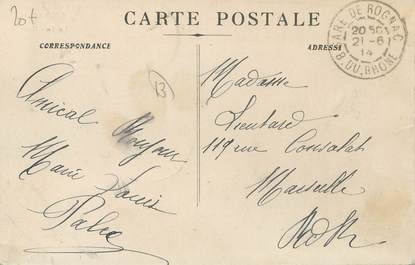 20+
CARTE POSTALE
CORRESPONDANCE
ADRESSE
GARE DE ROGNAC
20 50
21-6
14
B. DU RHONE
13
Amical Bonjour
Marie Louise
Madame
Lieutard
119 rue Consolat
Marseille
BdR